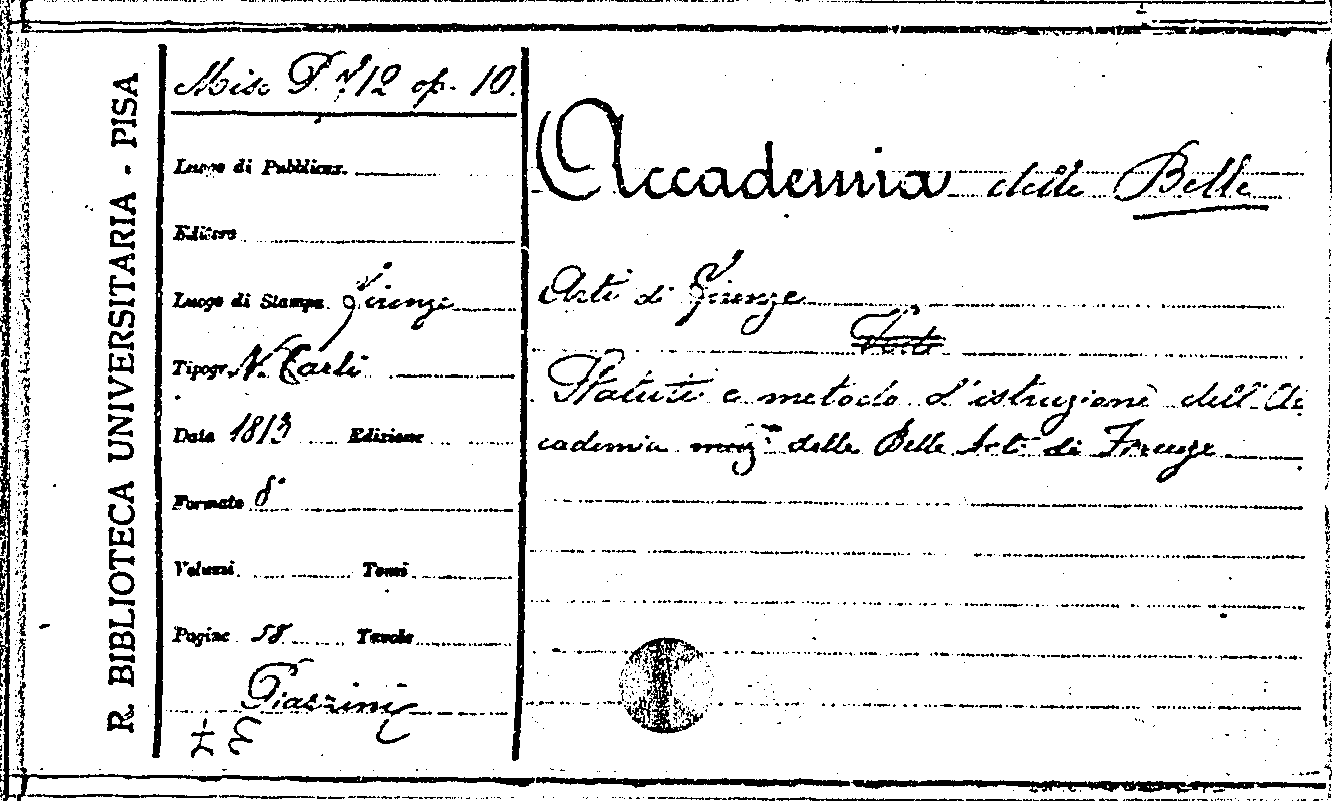 R. BIBLIOTECA UNIVERSITARIA - PISA
Misc P. 12 op. 10.
Luogo di Pubblicaz.
Editore
Luogo di Stampa Firenze
Tipogr. N. Carli
Data 1813 Edizione
Formato 8°
Volumi Tomi
Pagine 58 Tavole
Piazzini
Accademia delle Belle
Arti di Firenze
Statuti e metodo d'istruzione dell'Ac
cademia delle Belle Arti di Firenze